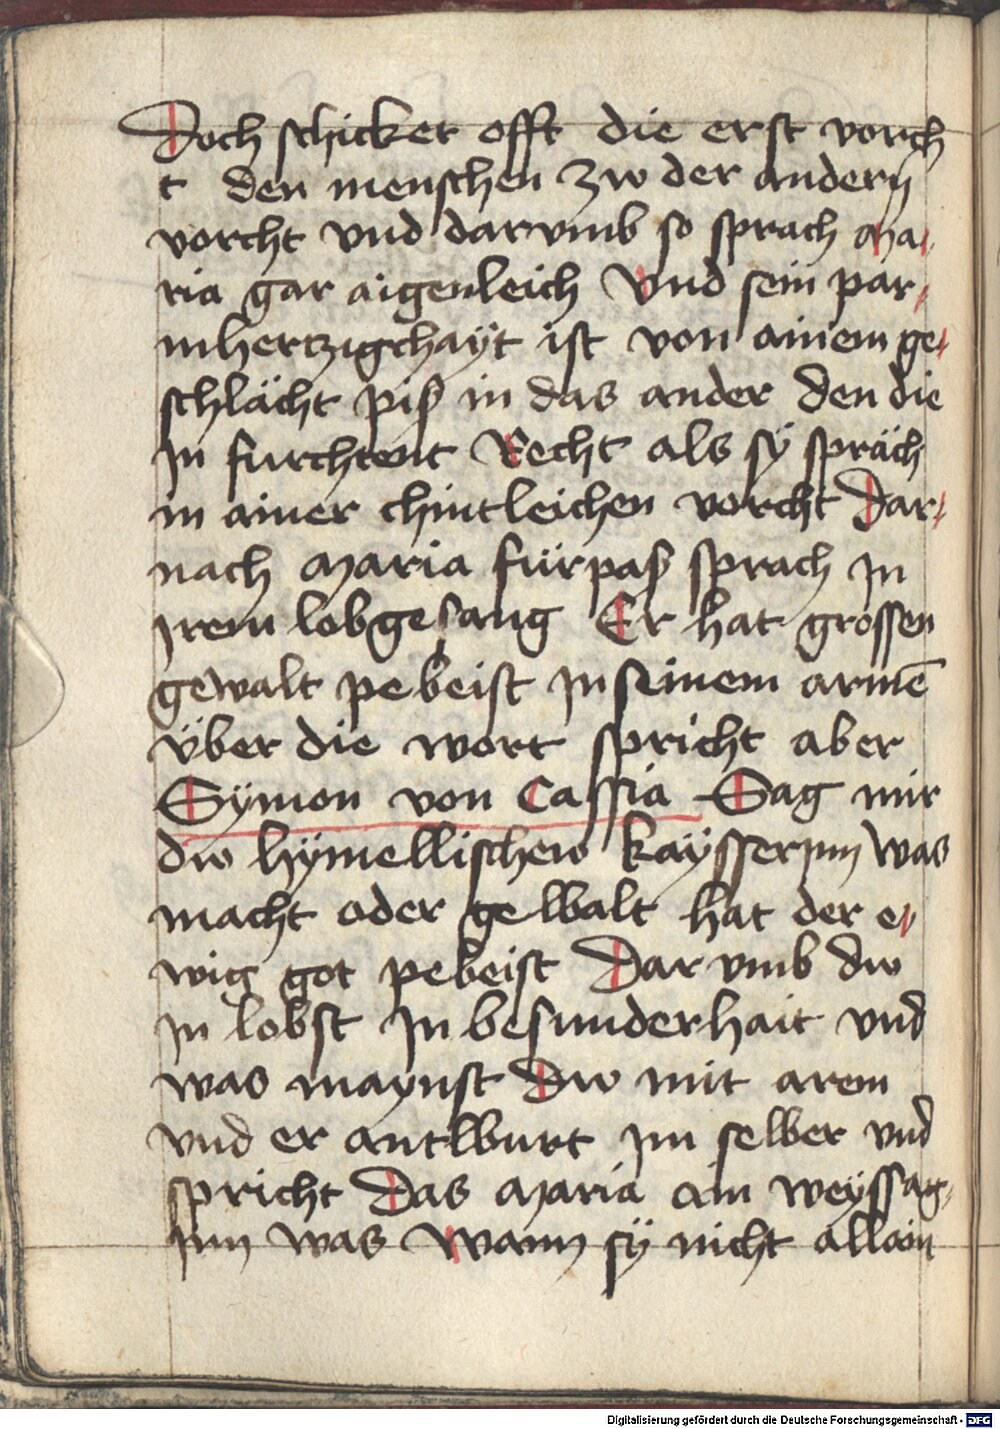 Doch schicket offt die erst vorch
t den menschen zw der andern
vorcht vnd darvmb so sprach Ma-
ria gar aigenleich Vnd sein par-
mhertzigchaÿt ist von ainem ge-
schlächt piß in das ander den die
in furchtent Recht als sÿ spräch
in ainer chintleichen vorcht Dar-
nach Maria fürpaß sprach in
irem lobgesang Er hat grossen
gewalt pebeist in seinem armē
über die wort spricht aber
Sÿmon von Cassia Sag mir
dw hÿmellischew kaÿsserinn was
macht oder gewalt hat der e-
wig got pebeist Dar vmb dw
in lobst in besunderhait vnd
was maynst Dw mit arem
vnd er antwurt im selber vnd
spricht Das Maria ain weÿssag-
inn was Wann sÿ nicht allain
Digitalisierung gefördert durch die Deutsche Forschungsgemeinschaft - DFG